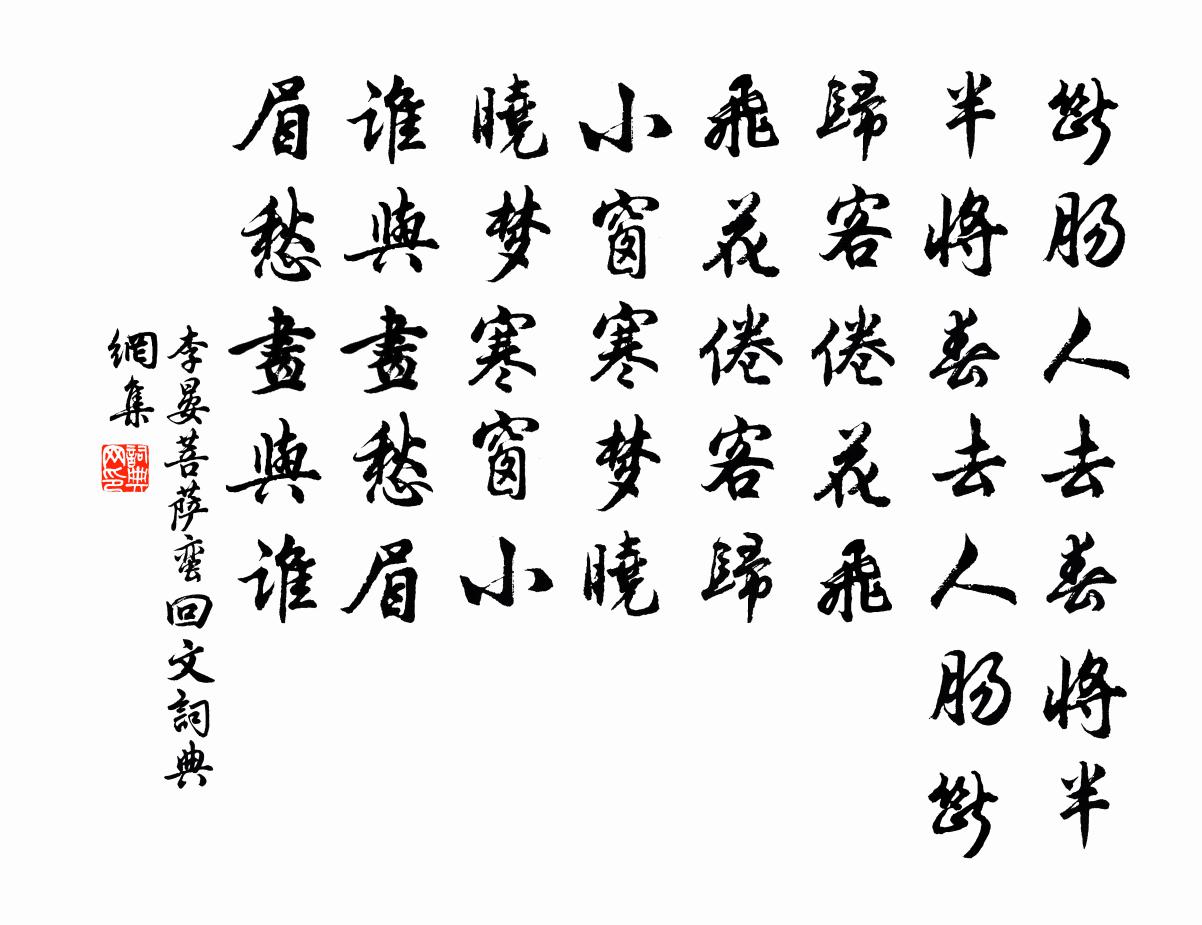 斷腸人去春將半
半將春去人腸斷
歸客倦花飛
飛花倦客歸
小窗寒梦曉
曉梦寒窗小
誰與畫愁眉
眉愁畫與誰
李晏菩薩蠻回文詞典
網集
詞典網印